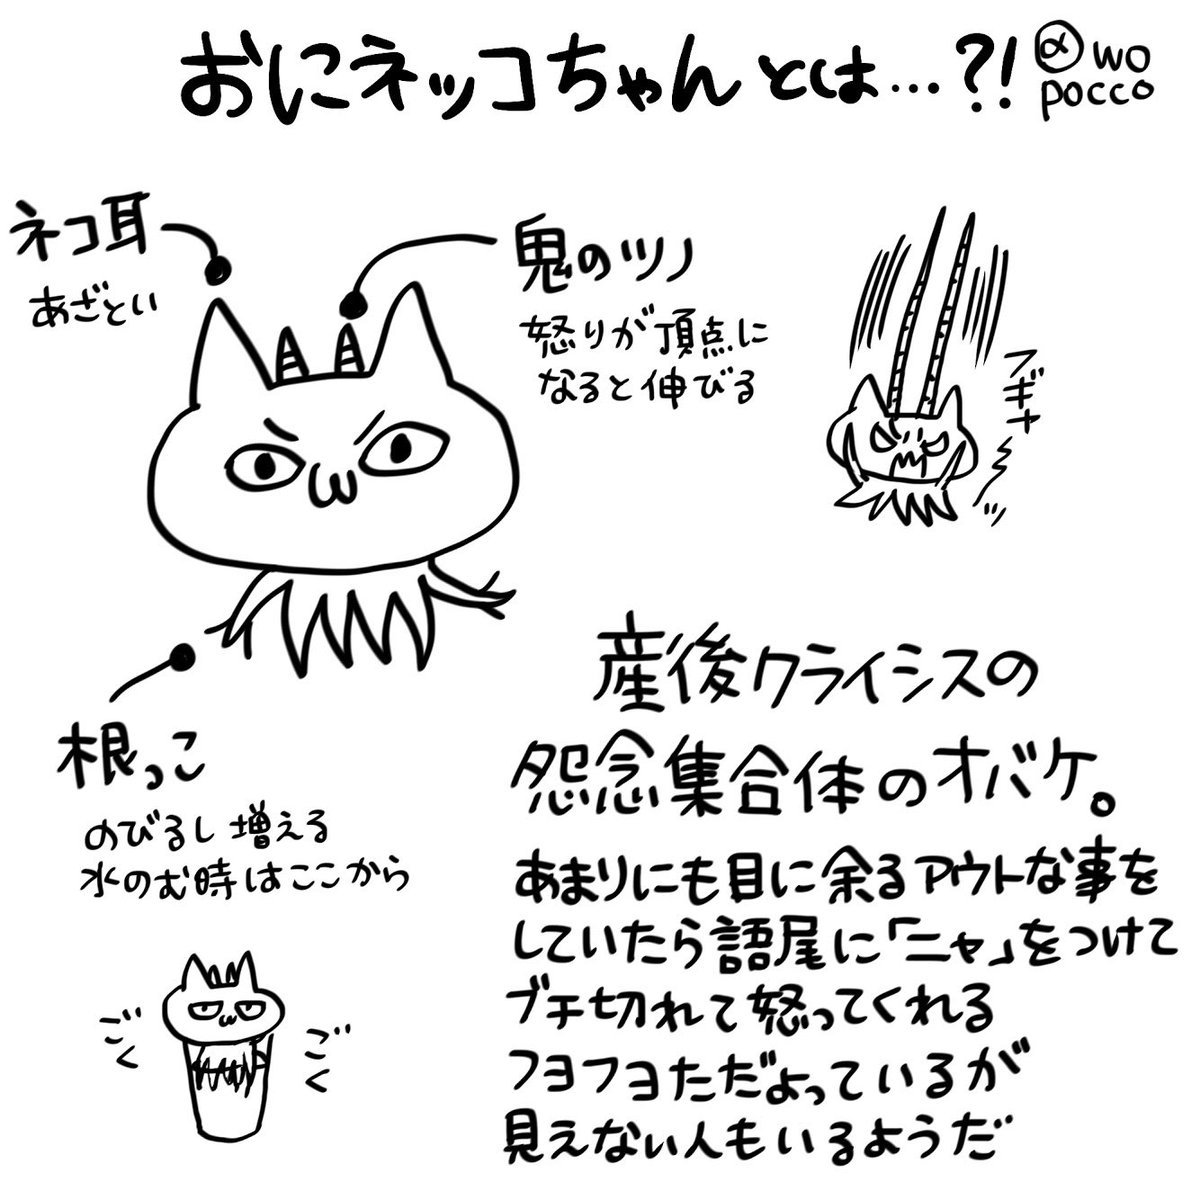 おにネッコちゃんとは…?!
@wo
pocco
ネコ耳
あざとい
鬼のツノ
怒りが頂点に
なると伸びる
フギャ
ッ
根っこ
のびるし増える
水のむ時はここから
ごく
ごく
産後クライシスの
怨念集合体のオバケ。
あまりにも目に余るアウトな事を
していたら語尾に「ニャ」をつけて
ブチ切れて怒ってくれる
フヨフヨただよっているが
見えない人もいるようだ